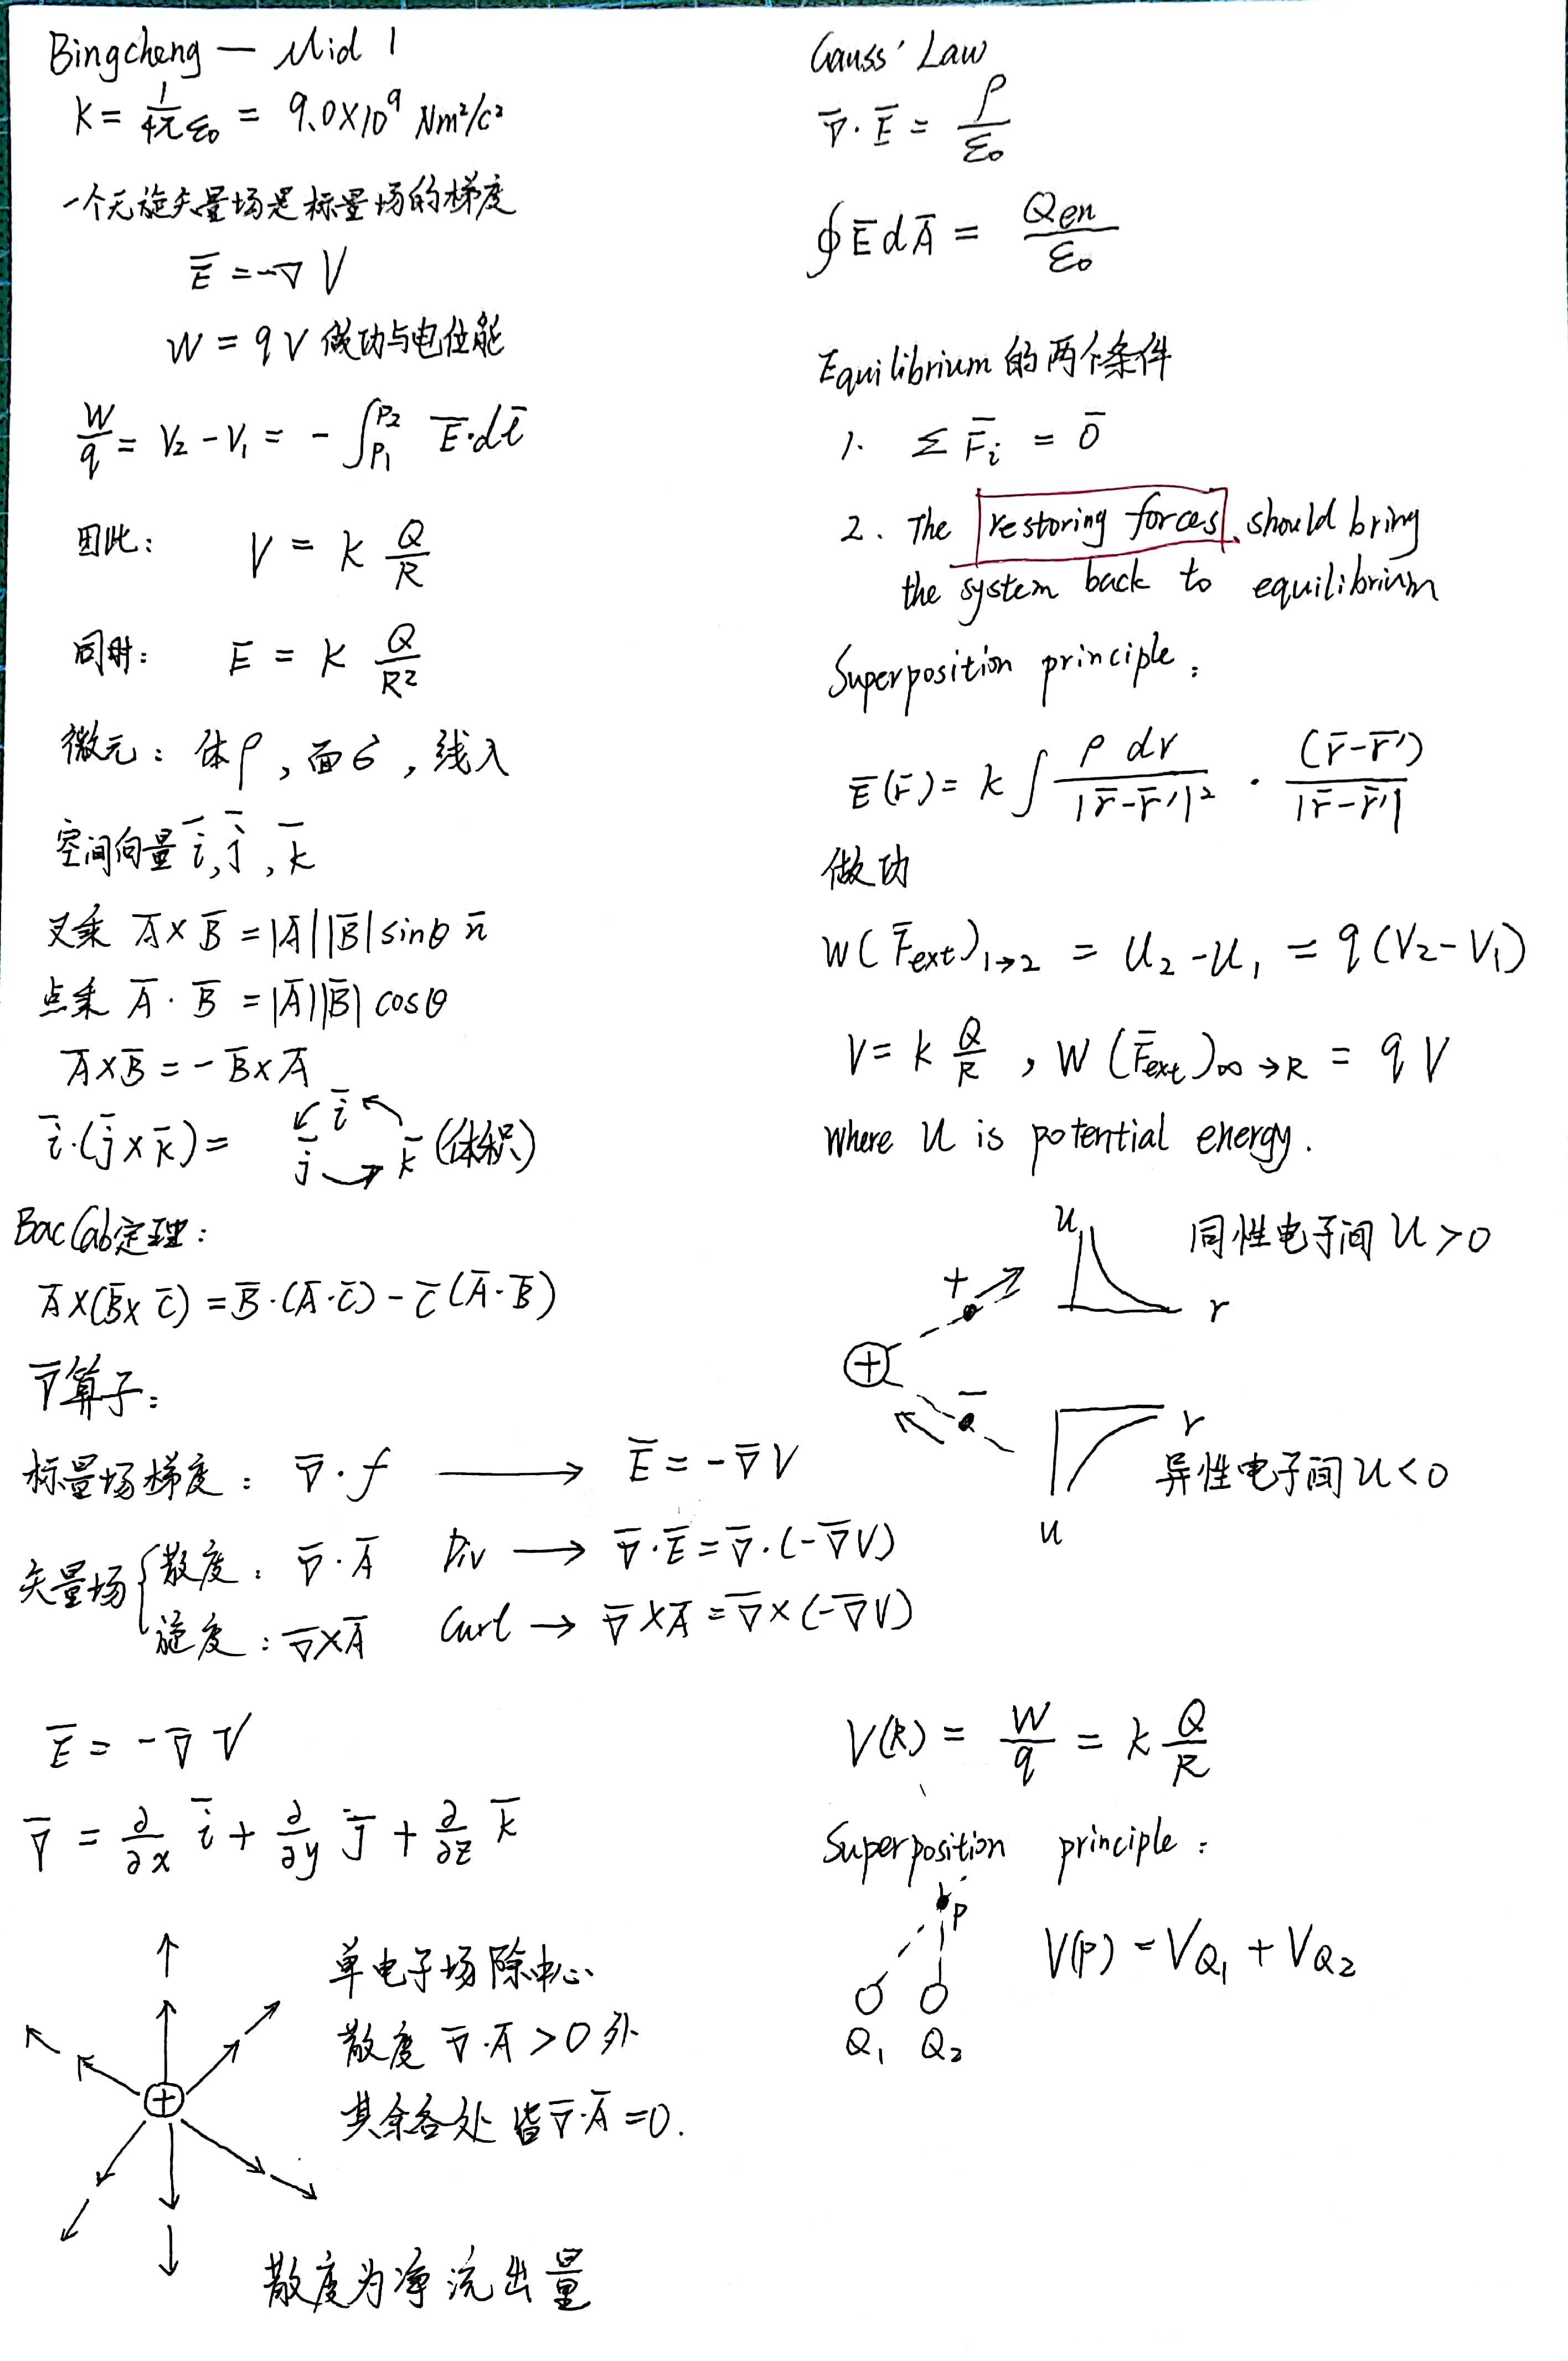 Bingcheng — Mid 1
K = 1/4πε₀ = 9.0×10⁹ Nm²/c²
一个无旋矢量场是标量场的梯度
E̅ = -∇ V
W = qV 做功与电位能
W/q = V₂ - V₁ = - ∫_{P₁}^{P₂} E̅·dl̅
因此: V = K Q/R
同时: E = K Q/R²
微元: 体ρ, 面σ, 线λ
空间向量 i̅, j̅, k̅
叉乘 A̅ × B̅ = |A̅||B̅| sinθ n̅
点乘 A̅ · B̅ = |A̅||B̅| cosθ
A̅×B̅ = - B̅×A̅
i̅·(j̅×k̅) = i̅ j̅ k̅ (体积)
Bac Cab定理:
A̅×(B̅×C̅) = B̅·(A̅·C̅) - C̅(A̅·B̅)
∇̅算子:
标量场梯度: ∇̅·f ⟶ E̅ = -∇̅V
矢量场 { 散度: ∇̅·A̅ Div ⟶ ∇̅·E̅ = ∇̅·(-∇̅V)
旋度: ∇̅×A̅ Curl → ∇̅×A̅ = ∇̅×(-∇̅V)
E̅ = -∇̅ V
∇̅ = ∂/∂x i̅ + ∂/∂y j̅ + ∂/∂z k̅
+
单电子场除中心
散度 ∇̅·A̅ > 0 外
其余各处皆∇̅·A̅ = 0.
散度为净流出量
Gauss' Law
∇̅·E̅ = ρ/ε₀
∮E̅dA̅ = Qen/ε₀
Equilibrium的两个条件
1. Σ F̅ᵢ = 0̅
2. The restoring forces should bring
the system back to equilibrium
Superposition principle:
E̅(r̅) = k ∫ ρ dv/|r̅-r̅′|² · (r̅-r̅′)/|r̅-r̅′|
做功
W(F̅ext)₁→₂ = U₂ - U₁ = q(V₂ - V₁)
V = k Q/R , W(F̅ext)∞→R = qV
where U is potential energy.
U r 同性电子间 U > 0
+
+
−
r U 异性电子间 U < 0
V(R) = W/q = k Q/R
Superposition principle:
P
V(P) = V_{Q₁} + V_{Q₂}
Q₁ Q₂